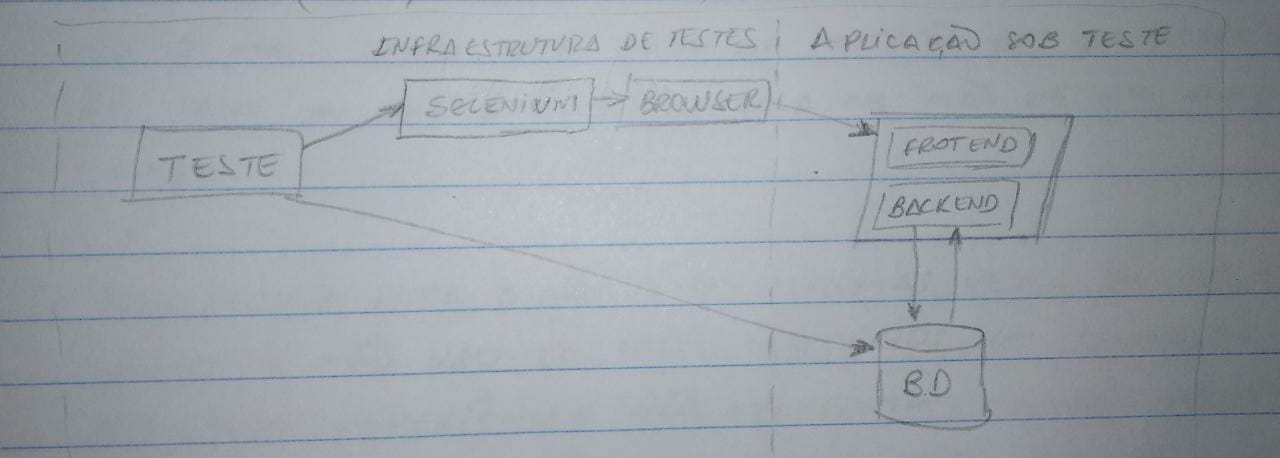 INFRAESTRUTURA DE TESTES APLICAÇÃO SOB TESTE
SELENIUM BROWSER
TESTE
FROTEND
BACKEND
B.D